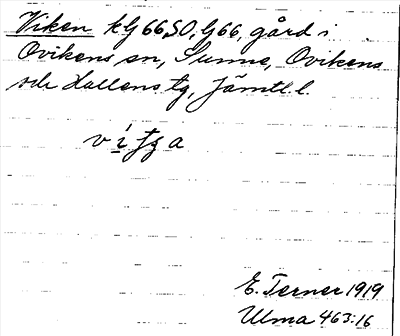 Viken kG 66 SO, G 66, gård i
Ovikens sn, Sunne, Ovikens
och Hallens tg, Jämtl. l.
E. Terner 1919
Ulma 463:16